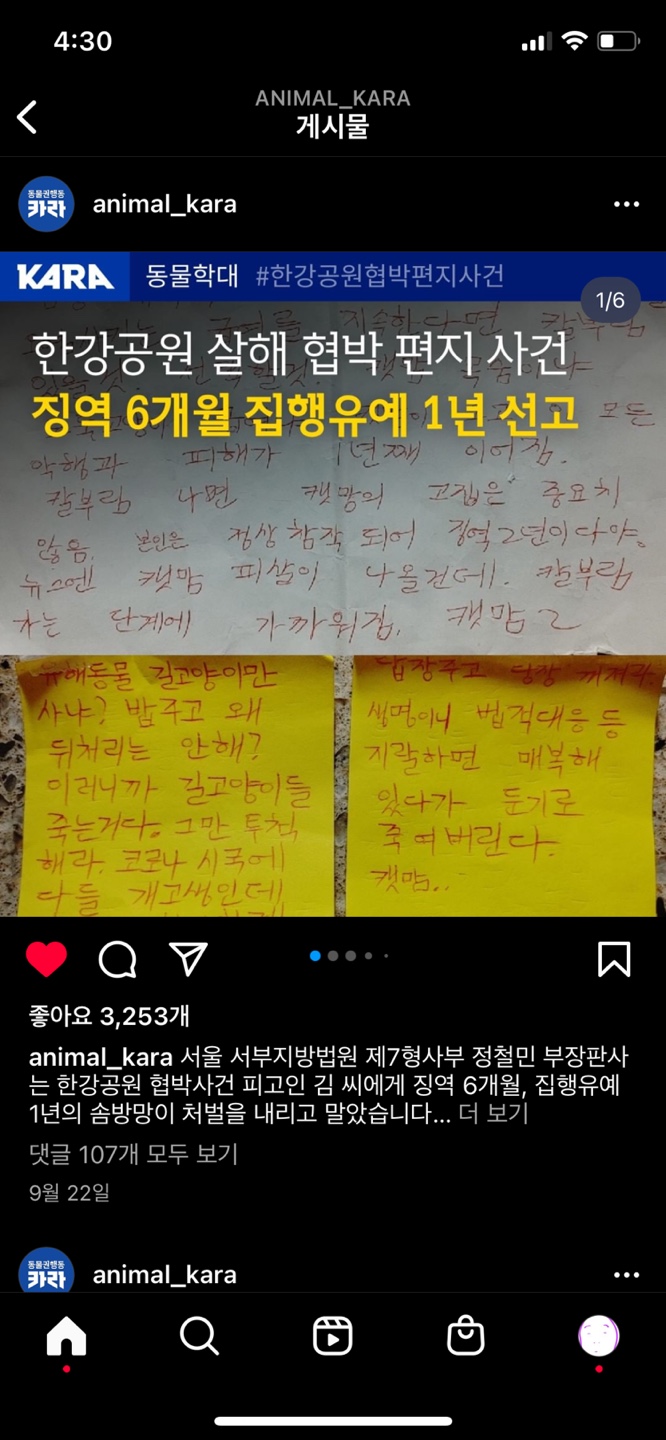 4:30
ANIMAL_KARA
게시물
동물권행동
카라
animal_kara
KARA 동물학대 #한강공원협박편지사건
1/6
지속한다면 칼부림
한강공원 살해 협박 편지 사건
징역 6개월 집행유예 1년 선고
모든
악행과 피해가 1년째 이어짐.
칼부림 나면 캣맘의 고집은 중요치
않음. 본인은 정상참작 되어 징역2년이다야.
뉴스엔 캣맘 피살이 나올건데. 칼부림
가는 단계에 가까워짐. 캣맘2
유해동물 길고양이만
사냐? 밥주고 왜
뒤처리는 안해?
이러니까 길고양이들
죽는거다. 그만 투척
해라. 코로나 시국에
다들 개고생인데
답장주고 당장 꺼져라.
생명이니 법적대응 등
지랄하면 매복해
있다가 둔기로
죽여버린다.
캣맘..
좋아요 3,253개
animal_kara 서울 서부지방법원 제7형사부 정철민 부장판사
는 한강공원 협박사건 피고인 김 씨에게 징역 6개월, 집행유예
1년의 솜방망이 처벌을 내리고 말았습니다... 더 보기
댓글 107개 모두 보기
9월 22일
동물권행동
카라
animal_kara